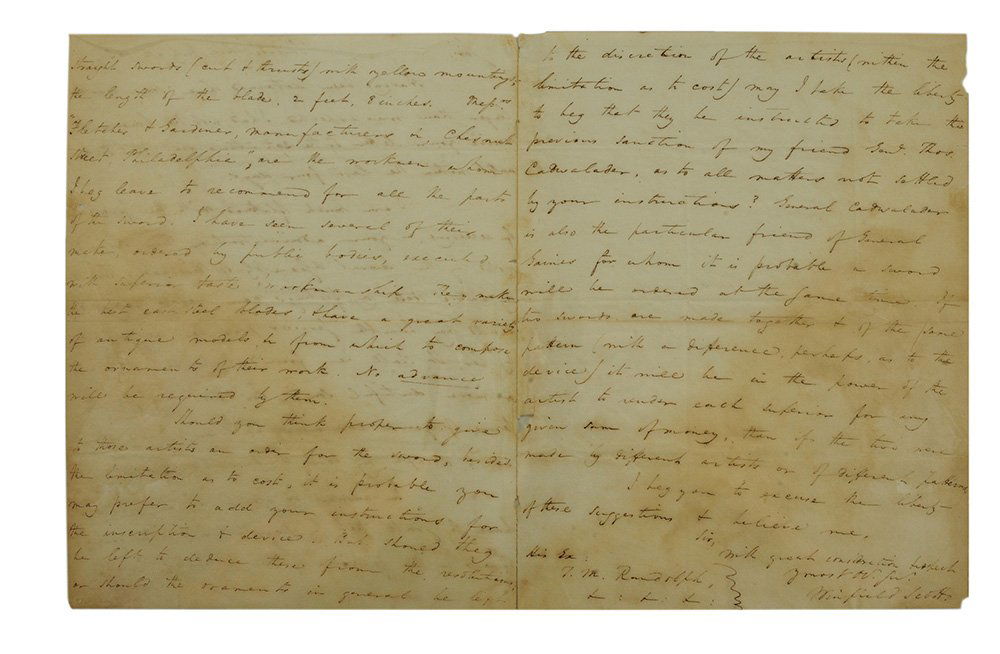 straight swords (cut & thrusts) with yellow mountings,
the length of the blade, 2 feet, 8 inches. Messrs
"Fletcher & Gardiner, manufacturers in Chesnut
Street Philadelphia", are the workmen whom
I beg leave to recommend for all the parts
of the sword. I have seen several of their
make, ordered by public bodies, executed
with superior taste & workmanship. They make
the best cast steel blades, & have a great variety
of antique models &c from which to compose
the ornaments of their work. No advance
will be required by them.
Should you think proper to give
to those artists an order for the sword, besides
the limitation as to cost, it is probable you
may prefer to add your instructions for
the inscription & device. But should they
be left to deduce these from the resolutions,
or should the ornaments in general be left
to the discretion of the artists (within the
limitation as to cost) may I take the liberty
to beg that they be instructed to take the
previous sanction of my friend Genl. Thos.
Cadwalader, as to all matters not settled
by your instructions? General Cadwalader
is also the particular friend of General
Gaines for whom it is probable a sword
will be ordered at the same time. If
two swords are made together & of the same
pattern (with a difference, perhaps, as to the
device) it will be in the power of the
artist to render each superior for any
given sum of money, than if the two were
made by different artists or of different patterns
I beg you to excuse the liberty
of these suggestions & believe me,
Sir,
with great consideration & respect
Yr most Ob. Sr.
Winfield Scott.
His Ex.
T. M. Randolph,
&. : &. : &. :